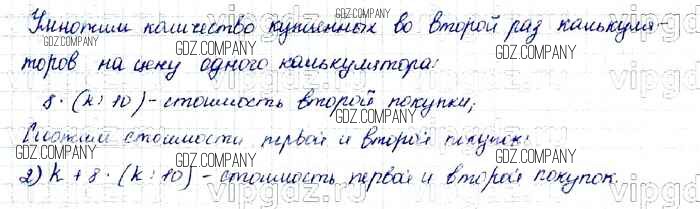 Умножим количество купленных во второй раз калькуля-
торов на цену одного калькулятора:
8 · (k : 10) - стоимость второй покупки;
Сложим стоимости первой и второй покупок:
2) k + 8 · (k : 10) - стоимость первой и второй покупок.
GDZ.COMPANY
GDZ.COMPANY
GDZ.COMPANY
GDZ.COMPANY
GDZ.COMPANY
GDZ.COMPANY
GDZ.COMPANY
GDZ.COMPANY
GDZ.COMPANY
GDZ.COMPANY
GDZ.COMPANY